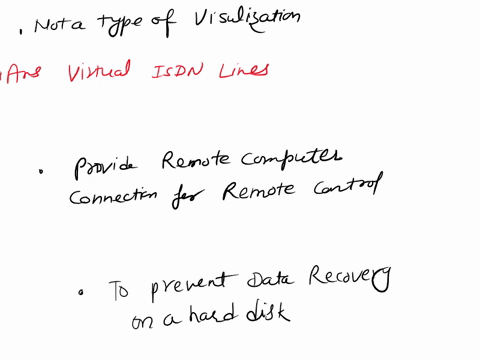 . Not a type of Visulization
Ans Virtual ISDN Lines
. Provide Remote Computer
Connection for Remote Control
. To prevent Data Recovery
on a hard disk